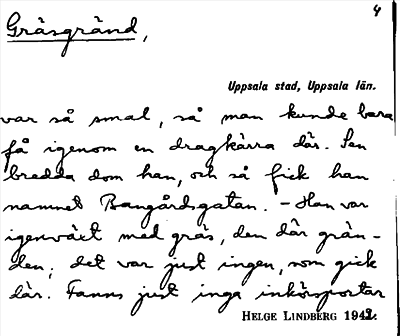 4
Gräsgränd,
Uppsala stad, Uppsala län.
var så smal, så man kunde bara
få igenom en dragkärra där. Sen
bredda dom han, och så fick han
namnet Bangårdsgatan. - Han var
igenväxt med gräs, den där grän-
den; det var just ingen, som gick
där. Fanns just inga inkörsportar
HELGE LINDBERG 1942.